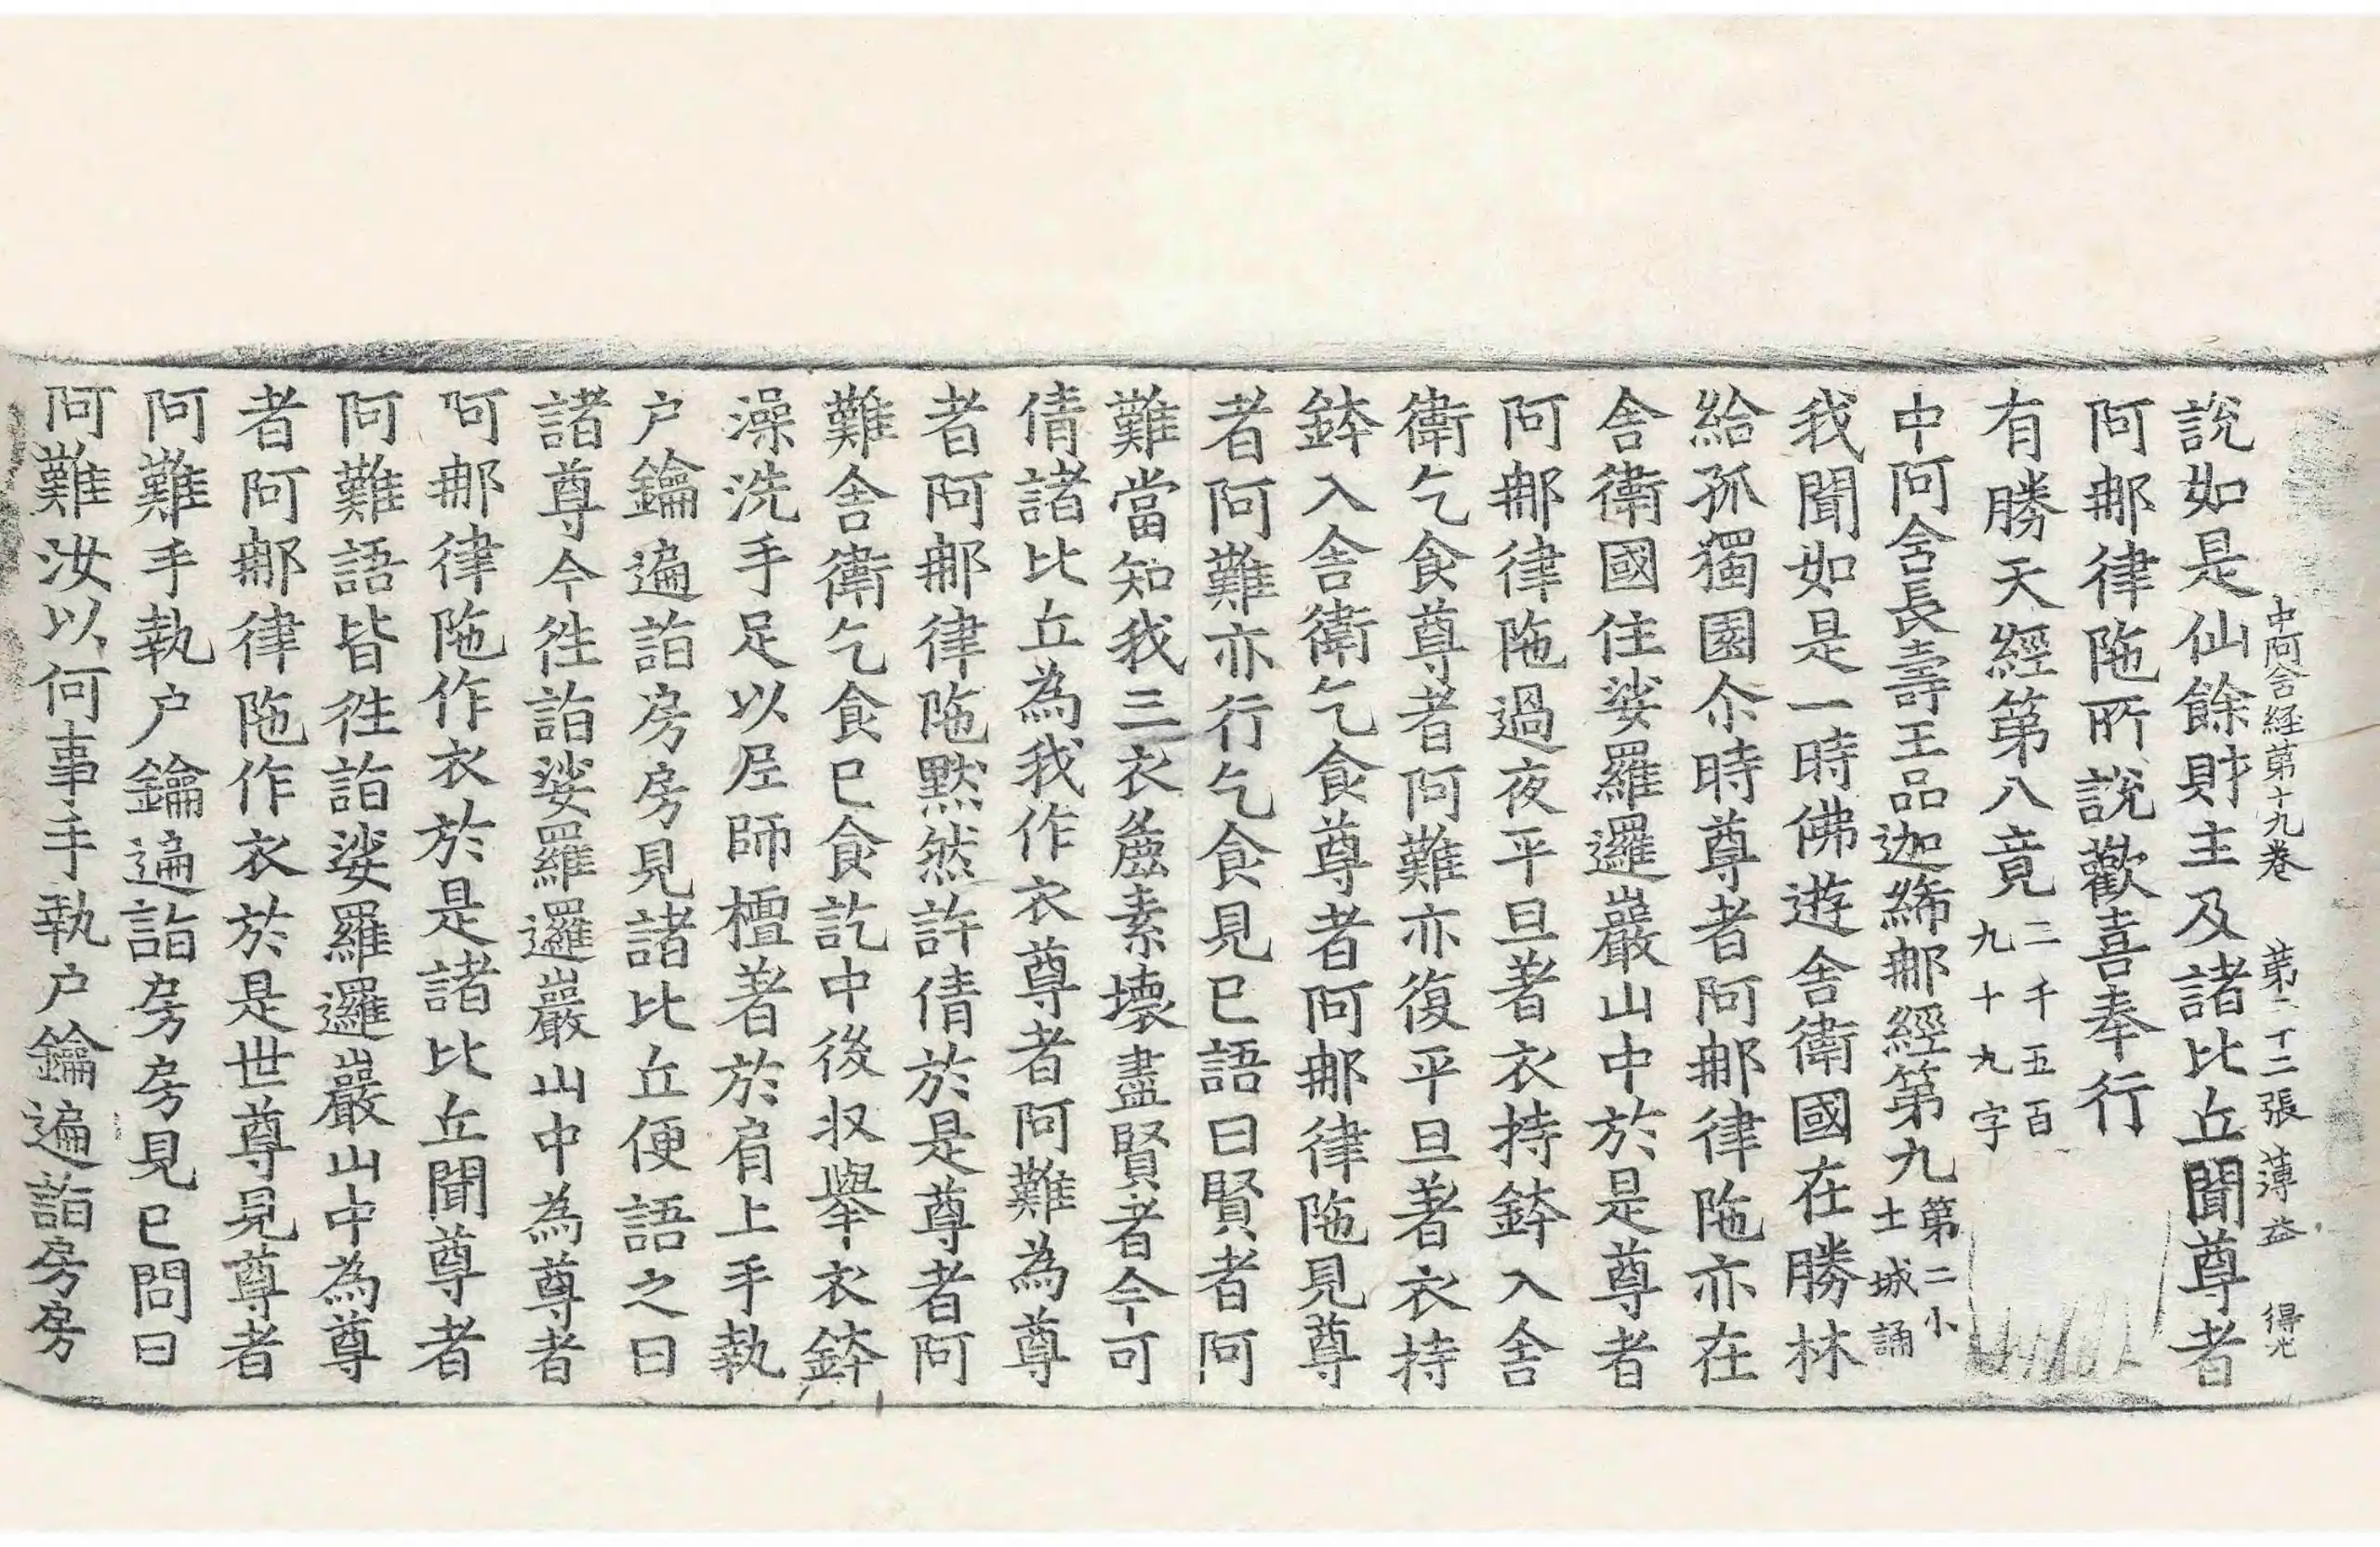 中阿含経第十九卷 第二十二張 薄 益 得光
說如是仙餘財主及諸比丘聞尊者
阿𨚗律陁所說歡喜奉行
有勝天經第八竟三千五百九十九字
中阿含長壽王品迦絺𨚗經第九第二小土城誦
我聞如是一時佛遊舍衛國在勝林
給孤獨園尒時尊者阿𨚗律陁亦在
舍衛國住娑羅邏巖山中於是尊者
阿𨚗律陁過夜平旦著衣持鉢入舍
衛乞食尊者阿難亦復平旦著衣持
鉢入舍衛乞食尊者阿𨚗律陁見尊
者阿難亦行乞食見已語曰賢者阿
難當知我三衣麁素壞盡賢者今可
倩諸比丘為我作衣尊者阿難為尊
者阿𨚗律陁默然許倩於是尊者阿
難舍衛乞食已食訖中後收舉衣鉢
澡洗手足以𡰱師檀著於肩上手執
户鑰遍詣房房見諸比丘便語之曰
諸尊今徃詣娑羅邏巖山中為尊者
阿𨚗律陁作衣於是諸比丘聞尊者
阿難語皆徃詣娑羅邏巖山中為尊
者阿𨚗律陁作衣於是世尊見尊者
阿難手執户鑰遍詣房房見已問曰
阿難汝以何事手執户鑰遍詣房房